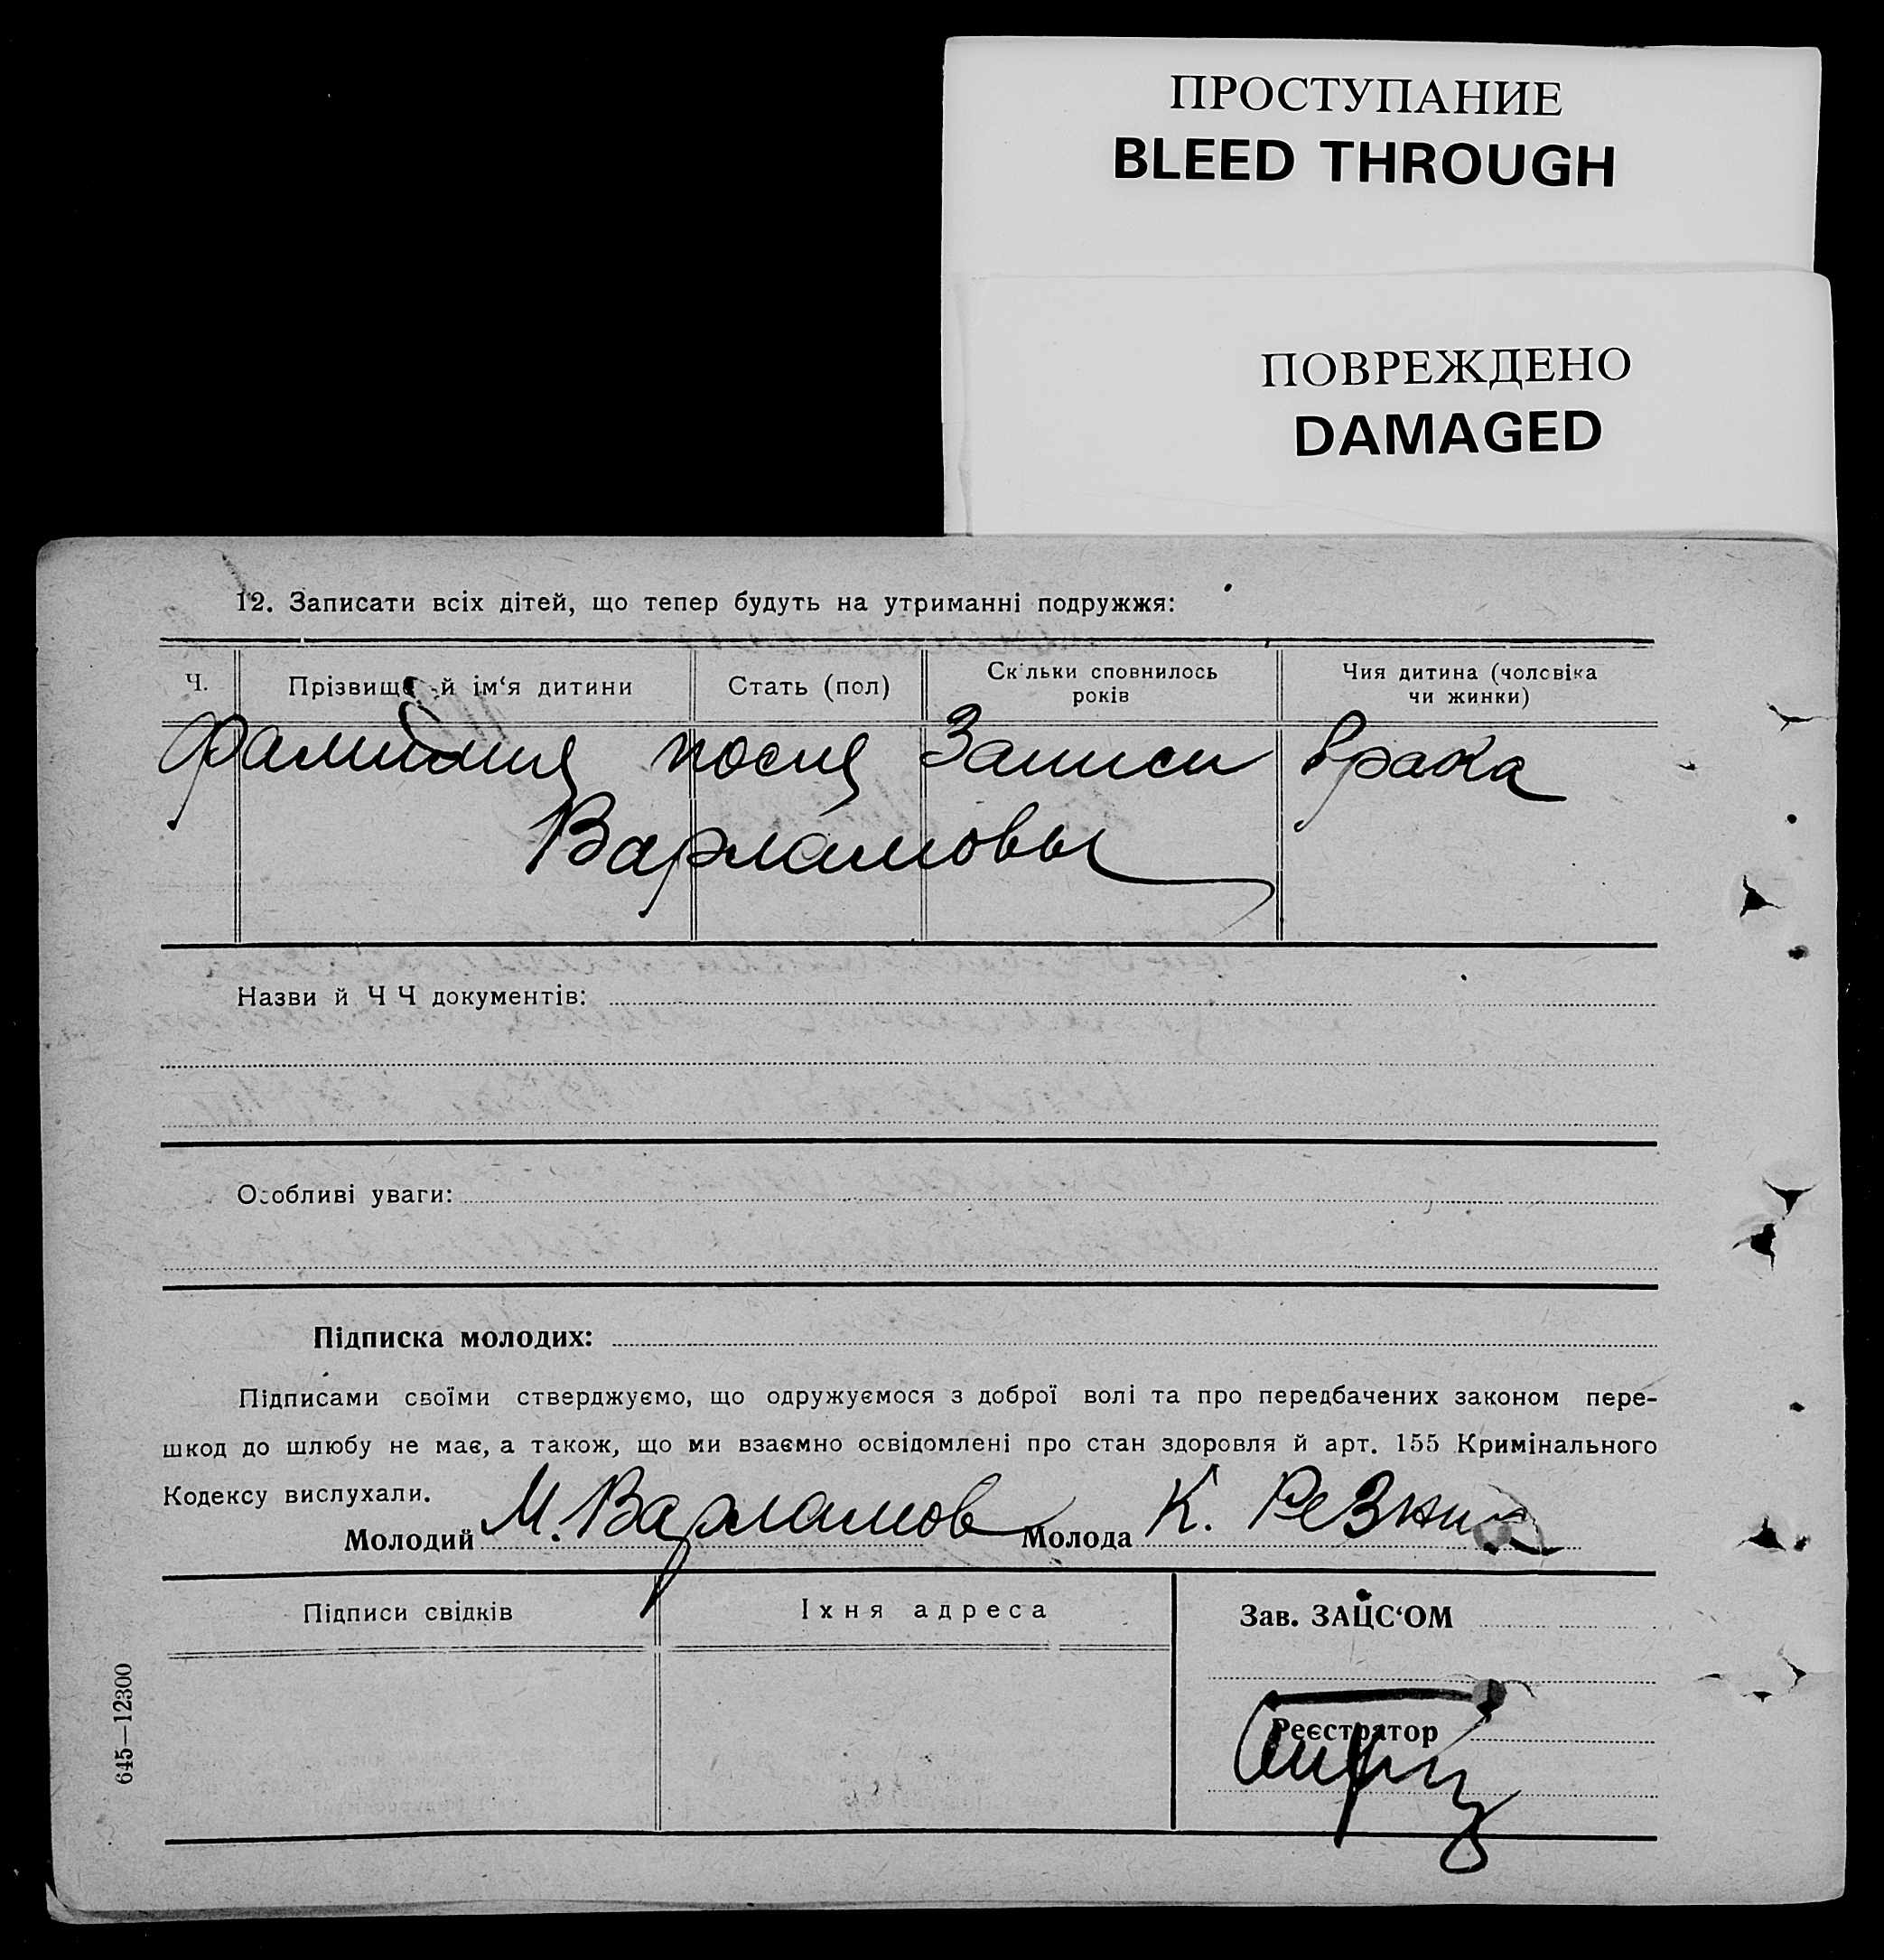 ПРОСТУПАНИЕ
BLEED THROUGH
ПОВРЕЖДЕНО
DAMAGED
12. Записати всіх дітей, що тепер будуть на утриманні подружжя:
Ч.
Прізвище й ім‘я дитини
Стать (пол)
Скільки сповнилось
років
Чия дитина (чоловіка
чи жинки)
Фамилия после Записи брака
Варламовы
Назви й Ч Ч документів:
Особливі уваги:
Підписка молодих:
Підписами своїми стверджуємо, що одружуємося з доброї волі та про передбачених законом пере-
шкод до шлюбу не має, а також, що ми взаємно освідомлені про стан здоровля й арт. 155 Кримінального
Кодексу вислухали.
Молодий М. Варламов Молода К. Резник
Підписи свідків
Їхня адреса
Зав. ЗАЦС‘ОМ
Реєстратор
645—12300